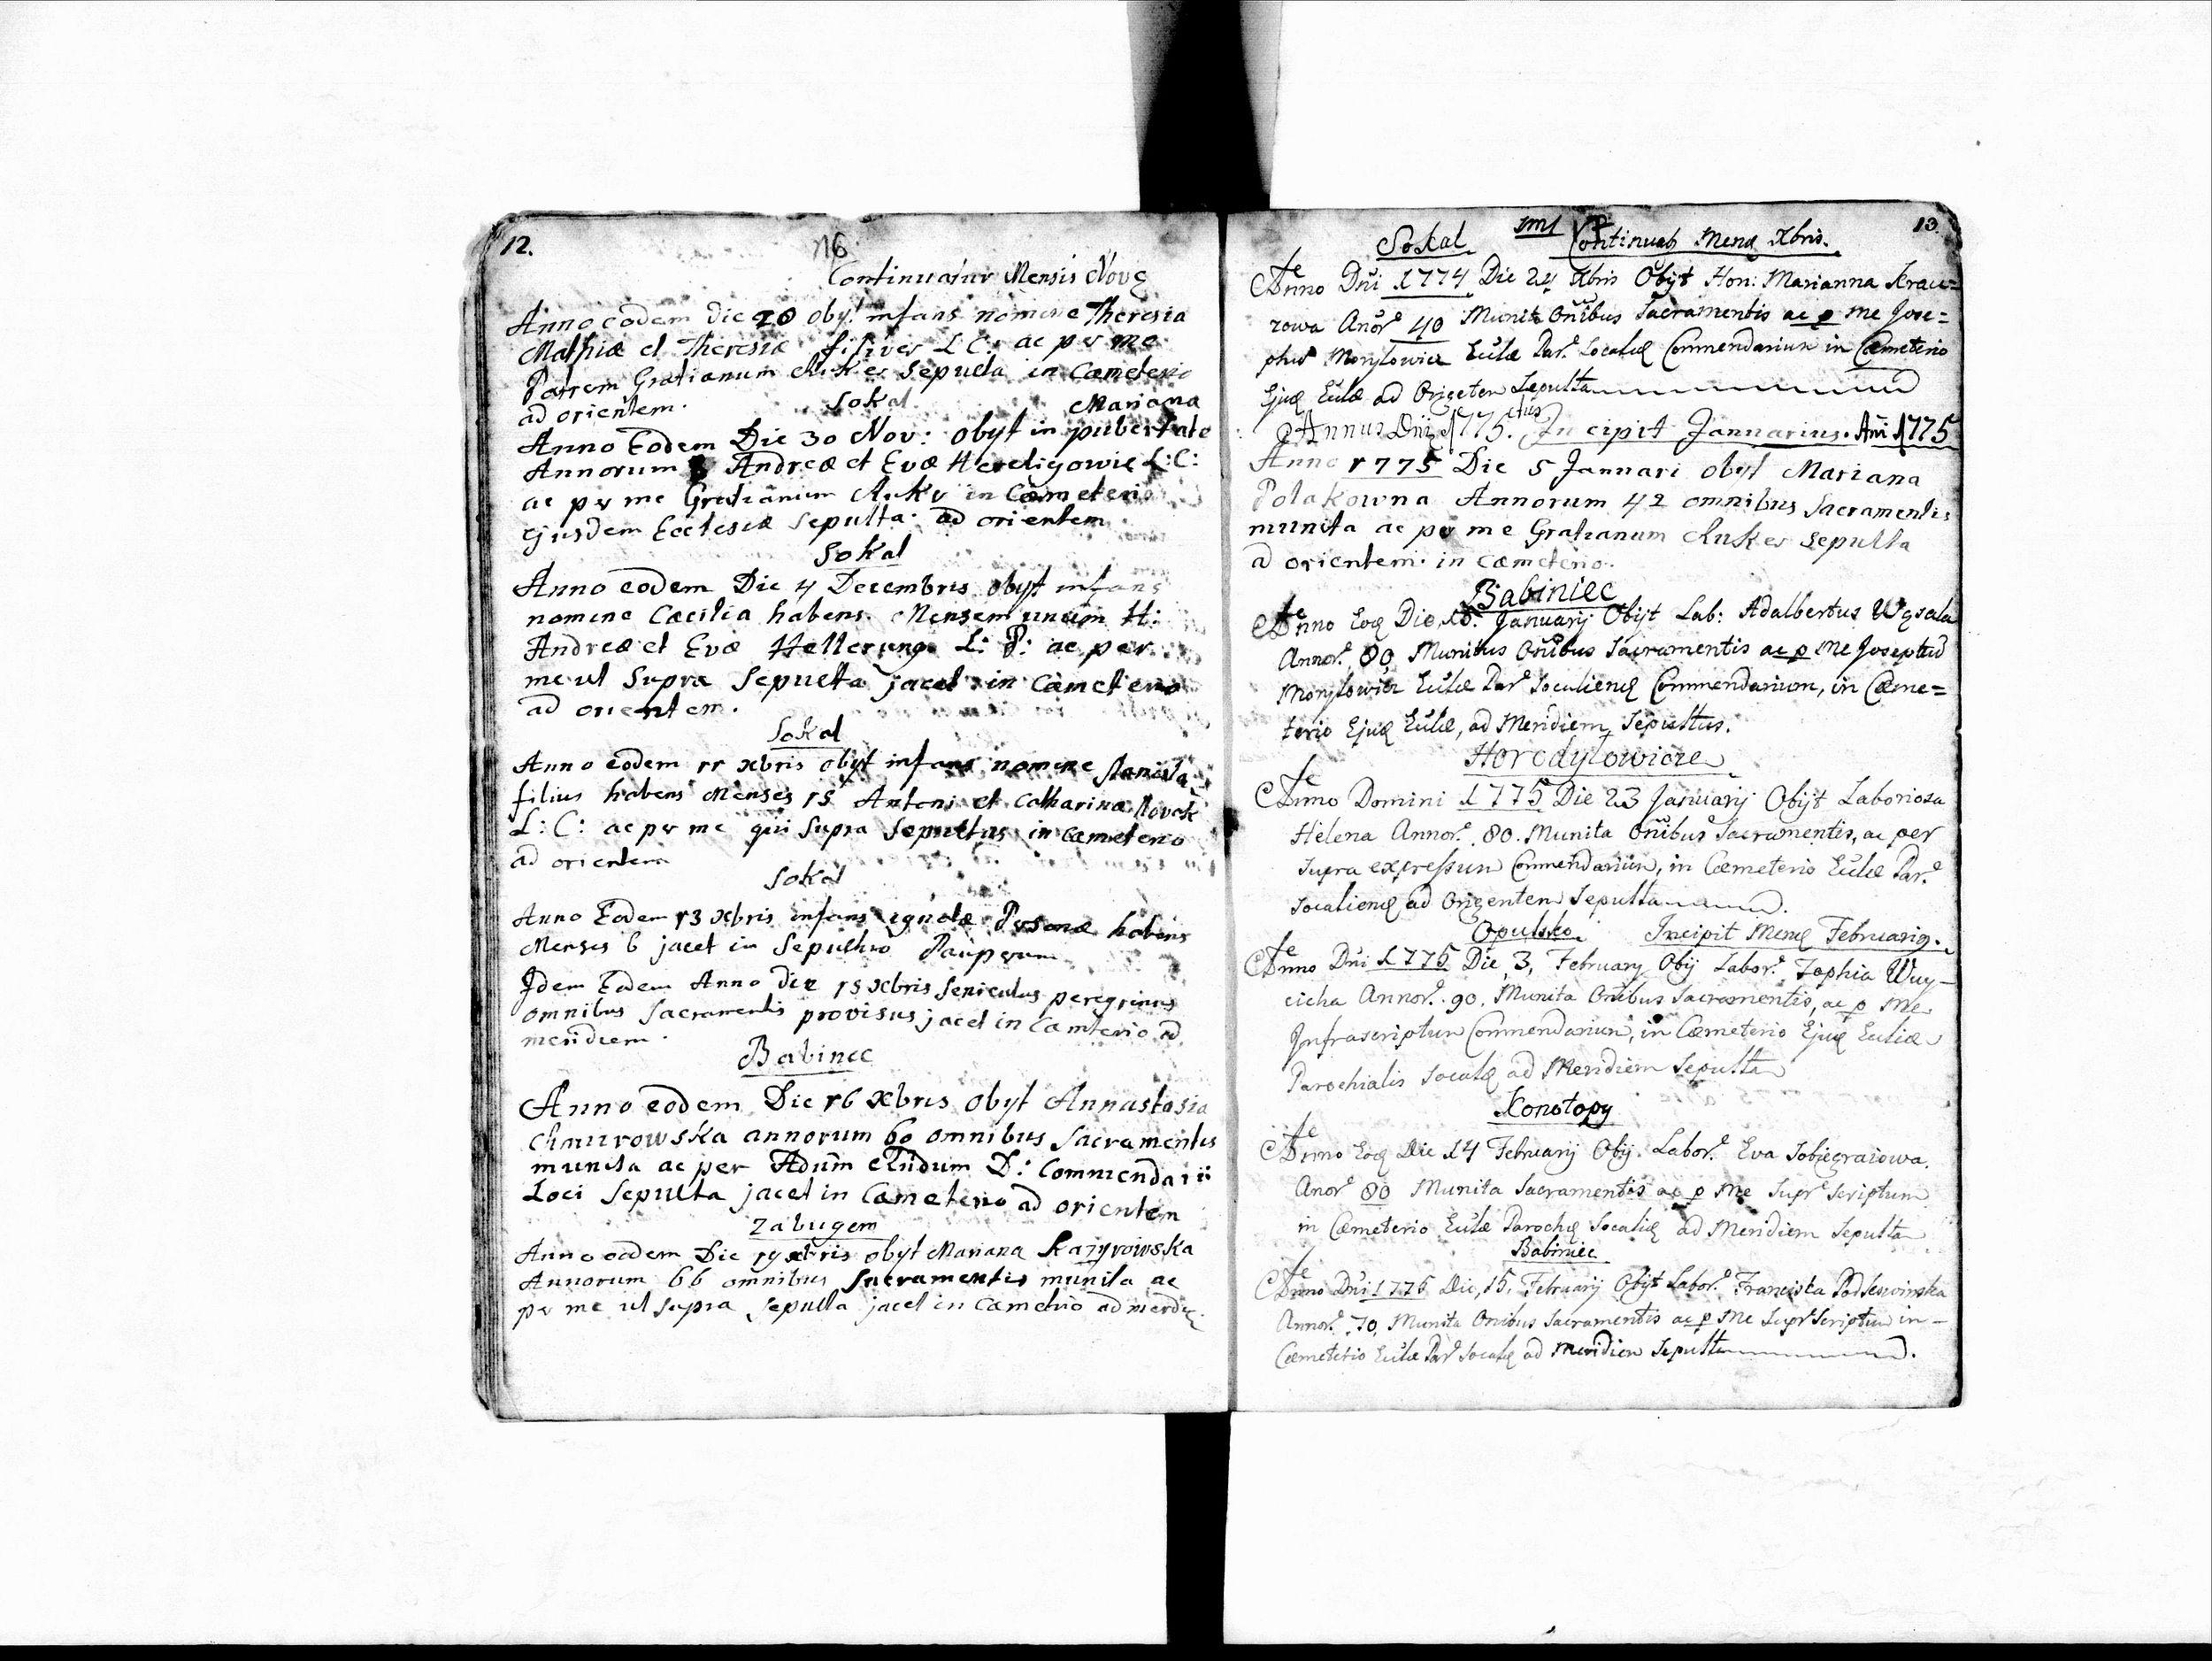 12.
Continuatur Mensis Nove
Anno eodem die 20 obyt infans nomine Theresia
Mathiæ et Theresiæ L C: ac per me
Patrem Gratianum Rukes sepulta in Cæmeterio
ad orientem.
Sokal
Mariana
Anno Eodem Die 30 Nov: obyt in pubertate
Annorum Andreæ et Evæ L: C:
ac per me Gratianum in Cæmeterio
ejusdem Ecclesiæ Sepulta ad orientem
Sokal
Anno eodem Die 4 Decembris obyt infans
nomine Cæcilia habens Mensem unum H:
Andreæ et Evæ L: P: ac per
me ut Supra Sepulta jacet in Cæmeterio
ad orientem.
Sokal
Anno eodem 11 xbris obyt infans nomine
filius habens Menses 15 Antoni et Catharinæ
L: C: ac per me qui Supra Sepultus in Cæmeterio
ad orientem
Sokal
Anno Eodem 13 xbris infans ignotæ Personæ habens
Menses 6 jacet in Sepulchro Pauperum
Idem Eodem Anno die 15 xbris Seniculus peregrinus
omnibus Sacramentis provisus jacet in Camterio ad
meridiem.
Babinec
Anno eodem Die 16 Xbris obyt Annastasia
annorum 60 omnibus Sacramentis
munita ac per Adum Rndum D: Commendarii
Loci Sepulta jacet in Cæmeterio ad orientem
Zabugem
Anno eodem Die 19 xbris obyt Mariana Kazyrowska
Annorum 66 omnibus Sacramentis munita ac
per me ut supra Sepulta jacet in Cametrio ad
13.
Sokal Continuat Mens Xbris.
Anno Dni 1774 Die 24 Xbris Obyt Hon: Marianna Kraw=
zowa Anor 40 Munita Onibus Sacramentis ac p me Jose=
phu Morylowicz Eclæ Par Socalie Commendarium in Cæmeterio
Ejus Eclæ ad Orientem Sepulta
Annus Dni 1775. Incipit Jannarius. Ani 1775
Anno 1775 Die 5 Jannari obyt Mariana
Polakowna Annorum 42 omnibus Sacramentis
munita ac per me Gratianum Rukes sepulta
ad orientem in cæmeterio.
Babiniec
Anno Eoq Die 18 Januarij Obijt Lab: Adalbertus
Annor 80 Munitus Onibus Sacramentis ac p me Josephu
Morylowicz Eclæ Par Socaliens Commendarium, in Cæme=
terio Ejus Eclæ, ad Meridiem, Sepultus.
Horodylowicze
Anno Domini 1775 Die 23 Januarij Obijt Laboriosa
Helena Annor. 80. Munita Onibus Sacramentis, ac per
Supra expressum Commendarium, in Cæmeterio Eclæ Par
Socaliens ad Orientem Sepulta
Opulsko. Incipit Mens Februarig.
Anno Dni 1775 Die, 3, February Obij Labor. Zophia Wuy-
cicha Annor. 90, Munita Onibus Sacramentis, ac p me
Infrascriptum Commendarium, in Cæmeterio Ejus Eclæ
Parochialis Socalie ad Meridiem Sepulta
Konotopy
Anno Eoq Die 14 Februarij Obij Labor. Eva Sobiegraiowa.
Anor 80 Munita Sacramentis ac p me Supr Scriptum
in Cæmeterio Eclæ Paroch Socalie ad Meridiem Sepulta
Babiniec
Anno Dni 1775 Die, 15, February Obijt Labor. Franciska
Annor. 70, Munita Onibus Sacramentis ac p me Supr Scriptum in-
Cæmeterio Eclæ Par Socalie ad Meridiem Sepulta